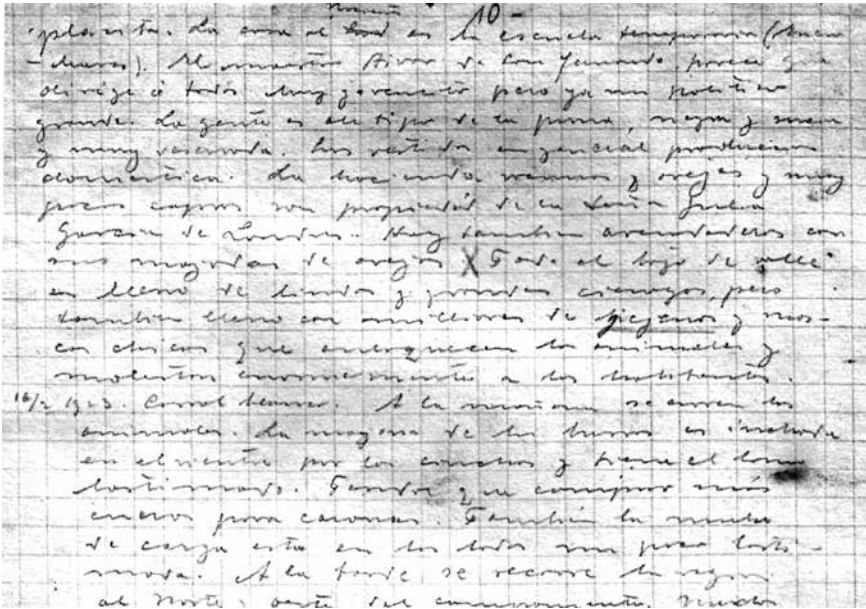 10-
placita. La casa al es la escuela temporaria
El maestro de San Fernando, parece que
dirige a todos muy pero ya un politico
grande. La gente es del tipo de la puna, negra y
y muy reservada. Los vestidos en general produccion
domestica. La hacienda vacunos y ovejas y muy
pocas cabras son propiedad de la Doña
Garcia de Londres. Hay tambien arrenderos con
sus majadas de ovejas X Todo el bajo de valle
es lleno de lindos y grandes cienagos, pero
tambien lleno con milliones de jejenes y mos-
cas chicas que enloquecen los animales y
molestan enormemente a los habitantes.
16/2 1923. Corral blanco. A la mañana se curan los
animales. La mayoria de los burros es inchada
en el vientre por los cinchos y tiene el lomo
lastimado. Tendre que comprar más
cueros para caronas. Tambien la mula
de carga esta en los lados un poco lasti-
mada. A la tarde se recorre la region
al Norte y oeste del campamento,